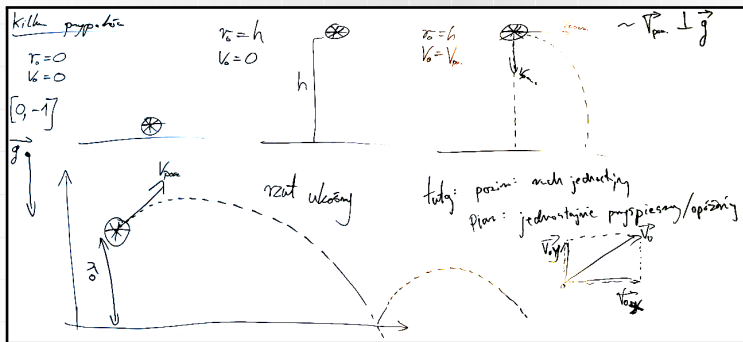 Kilka przypadków
r₀=0
V₀=0
[0,-1]
g
r₀=h
V₀=0
h
r₀=h
V₀=V
~ V ⊥ g
V
rzut ukośny
tutaj: poziom: ruch jednostajny
Pion: jednostajnie przyspieszony/opóźniony
V₀y
V₀
V₀x